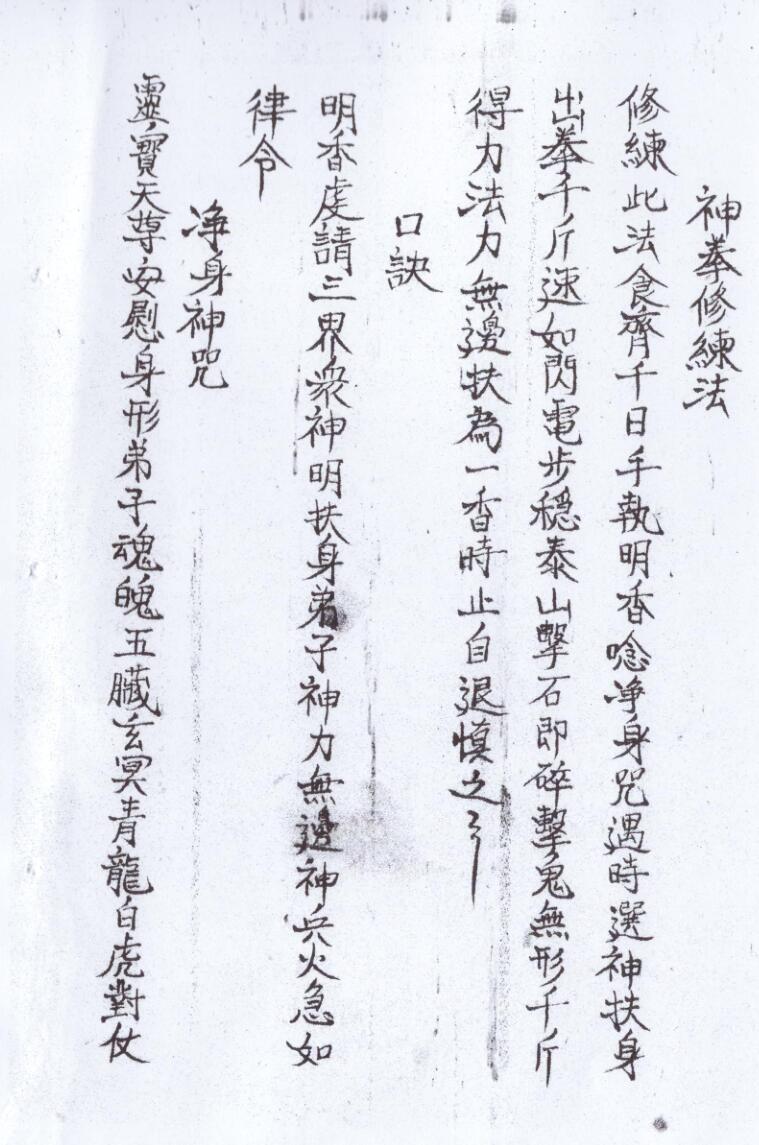 神拳修練法
修練此法食齊千日手執明香唸净身咒遇時選神扶身
出拳千斤速如閃電步穩泰山擊石即碎擊鬼無形千斤
得力法力無邊扶為一香時止自退慎之々
口訣
明香虔請三界眾神明扶身弟子神力無邊神兵火急如
律令
净身神咒
靈寶天尊安慰身形弟子魂魄五臟玄冥青龍白虎對仗